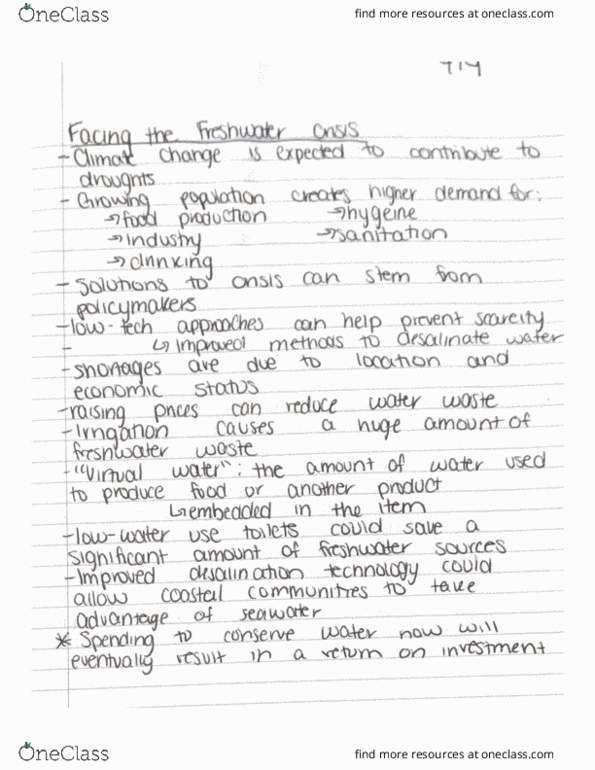 OneClass
find more resources at oneclass.com
7/14
Facing the Freshwater Crisis
- Climate change is expected to contribute to
droughts
- Growing population creates higher demand for:
→ food production → hygeine
→ industry → sanitation
→ drinking
- Solutions to crisis can stem from
policymakers
- low-tech approaches can help prevent scarcity
- ↳ improved methods to desalinate water
- shortages are due to location and
economic status
- raising prices can reduce water waste
- Irrigation causes a huge amount of
freshwater waste
- "Virtual water": the amount of water used
to produce food or another product
↳ embedded in the item
- low-water use toilets could save a
significant amount of freshwater sources
- Improved desalination technology could
allow coastal communities to take
advantage of seawater
* Spending to conserve water now will
eventually result in a return on investment
OneClass
find more resources at oneclass.com